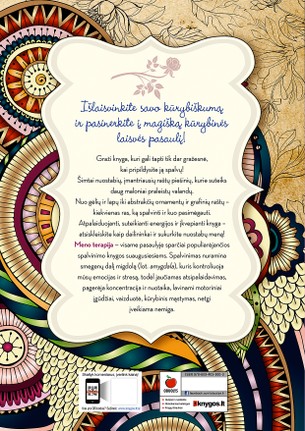 Išlaisvinkite savo kūrybiškumą
ir pasinerkite į magišką kūrybinės
laisvės pasaulį!
Graži knyga, kuri gali tapti tik dar gražesnė,
kai pripildysite ją spalvų!
Šimtai nuostabių, įmantriausių raštų piešinių, kurie suteiks
daug maloniai praleistų valandų.
Nuo gėlių ir lapų iki abstrakčių ornamentų ir grafinių raštų –
kiekvienas ras, ką spalvinti ir kuo pasimėgauti.
Atpalaiduojanti, suteikianti energijos ir įkvepianti knyga –
atsiskleiskite kaip dailininkai ir sukurkite nuostabų meną!
Meno terapija – visame pasaulyje sparčiai populiarėjančios
spalvinimo knygos suaugusiesiems. Spalvinimas nuramina
smegenų dalį migdolą (lot. amygdala), kuris kontroliuoja
mūsų emocijas ir stresą, todėl jaučiamas atsipalaidavimas,
pagerėja koncentracija ir nuotaika, lavinami motoriniai
įgūdžiai, vaizduotė, kūrybinis mąstymas, netgi
įveikiama nemiga.
OBUOLYS
knygos.lt